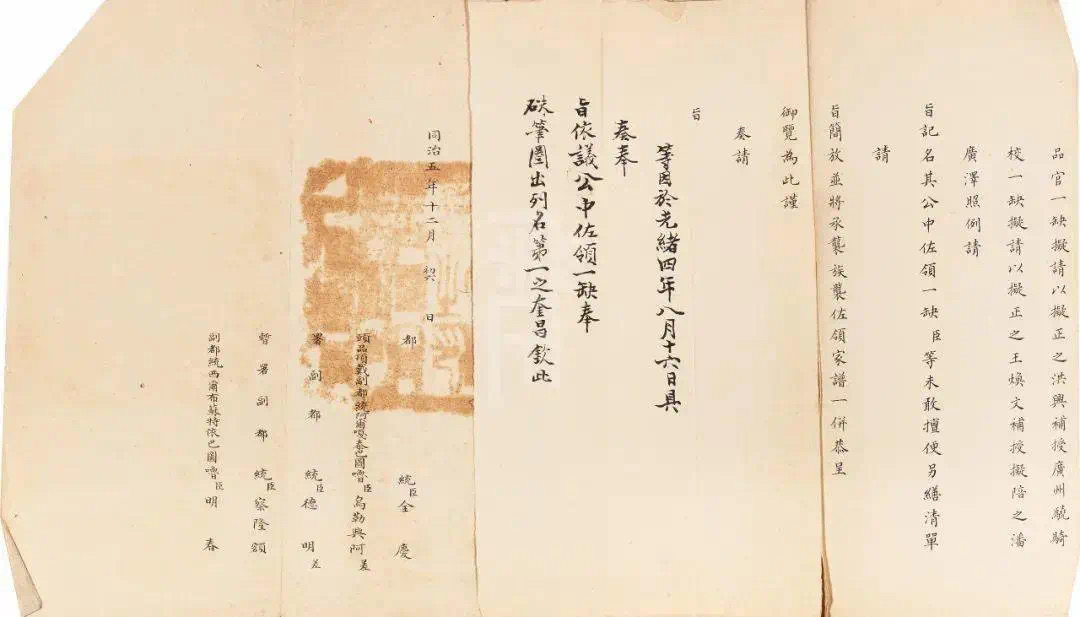 品官一缺擬請以擬正之洪興補授廣州驍騎
校一缺擬請以擬正之王煥文補授擬陪之潘
廣澤照例請
旨記名其公中佐領一缺臣等未敢擅便另繕清單
請
旨簡放並將承襲族襲佐領家譜一併恭呈
御覽為此謹
奏請
旨
等因於光緒四年八月十六日具
奏奉
旨依議公中佐領一缺奉
硃筆圈出列名第一之奎昌欽此
同治五年十二月 初六 日
都 統臣全 慶
頭品頂戴副都統阿爾嘎泰巴圖嚕臣烏勒興阿差
署副都 統臣德 明差
暫署副都 統臣察隆額
副都統西爾布蘇特依巴圖嚕臣明 春